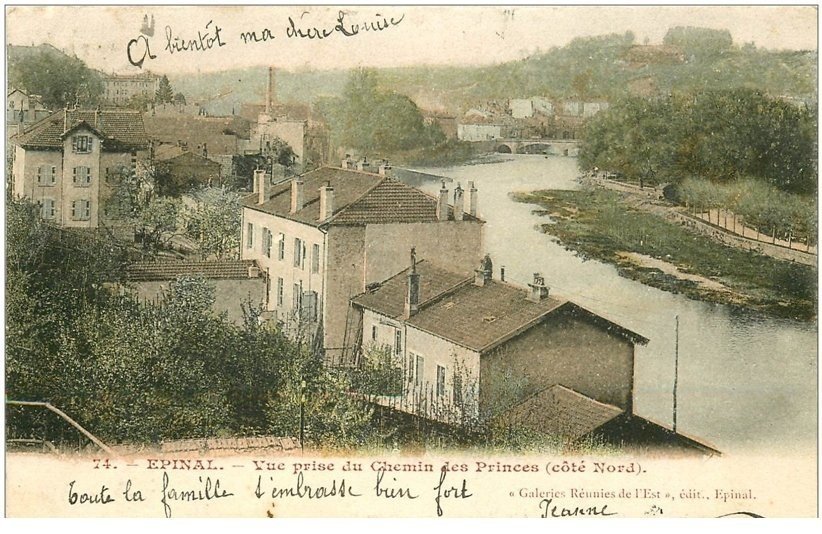 A bientôt ma chère Louise
74. - EPINAL. - Vue prise du Chemin des Princes (côté Nord).
Toute la famille t'embrasse bien fort
« Galeries Réunies de l'Est », édit., Epinal.
Jeanne